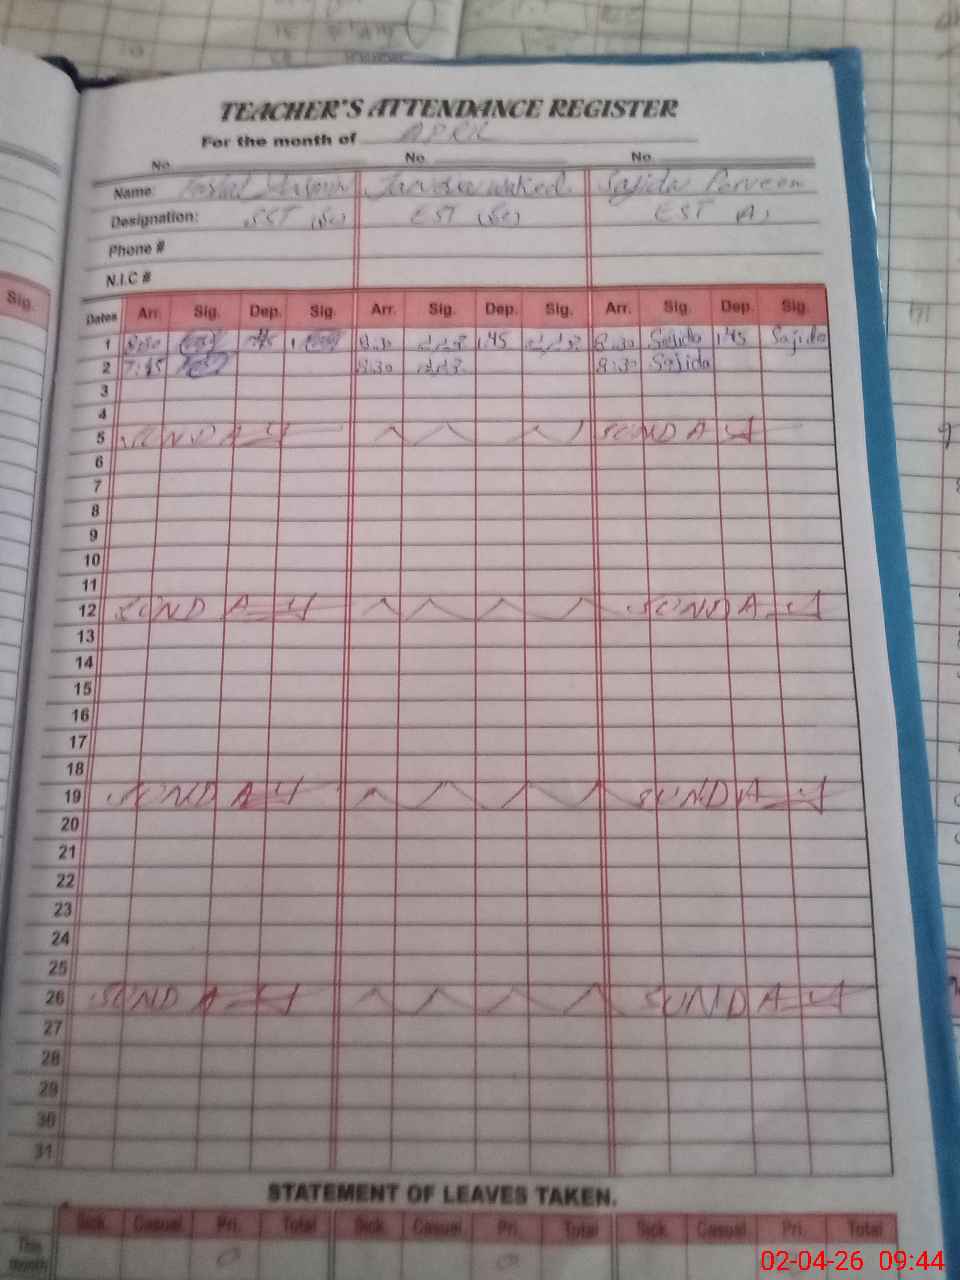 TEACHER'S ATTENDANCE REGISTER
For the month of APRIL
No. No. No.
Name: Sajida Parveen
Designation: SST (Sc) EST (Sc) EST A)
Phone #
N.I.C #
Sig.
Dates Arr. Sig. Dep. Sig. Arr. Sig. Dep. Sig. Arr. Sig. Dep. Sig.
1 8:30 8:30 1:45 8:30 Sajida 1:45 Sajida
2 7:45 8:30 8:30 Sajida
3
4
5 SUNDAY SUNDAY
6
7
8
9
10
11
12 SUNDAY SUNDAY
13
14
15
16
17
18
19 SUNDAY SUNDAY
20
21
22
23
24
25
26 SUNDAY SUNDAY
27
28
29
30
31
STATEMENT OF LEAVES TAKEN.
Sick. Casual Pri. Total Sick. Casual Pri. Total Sick. Casual Pri. Total
This Month 0 0
02-04-26 09:44